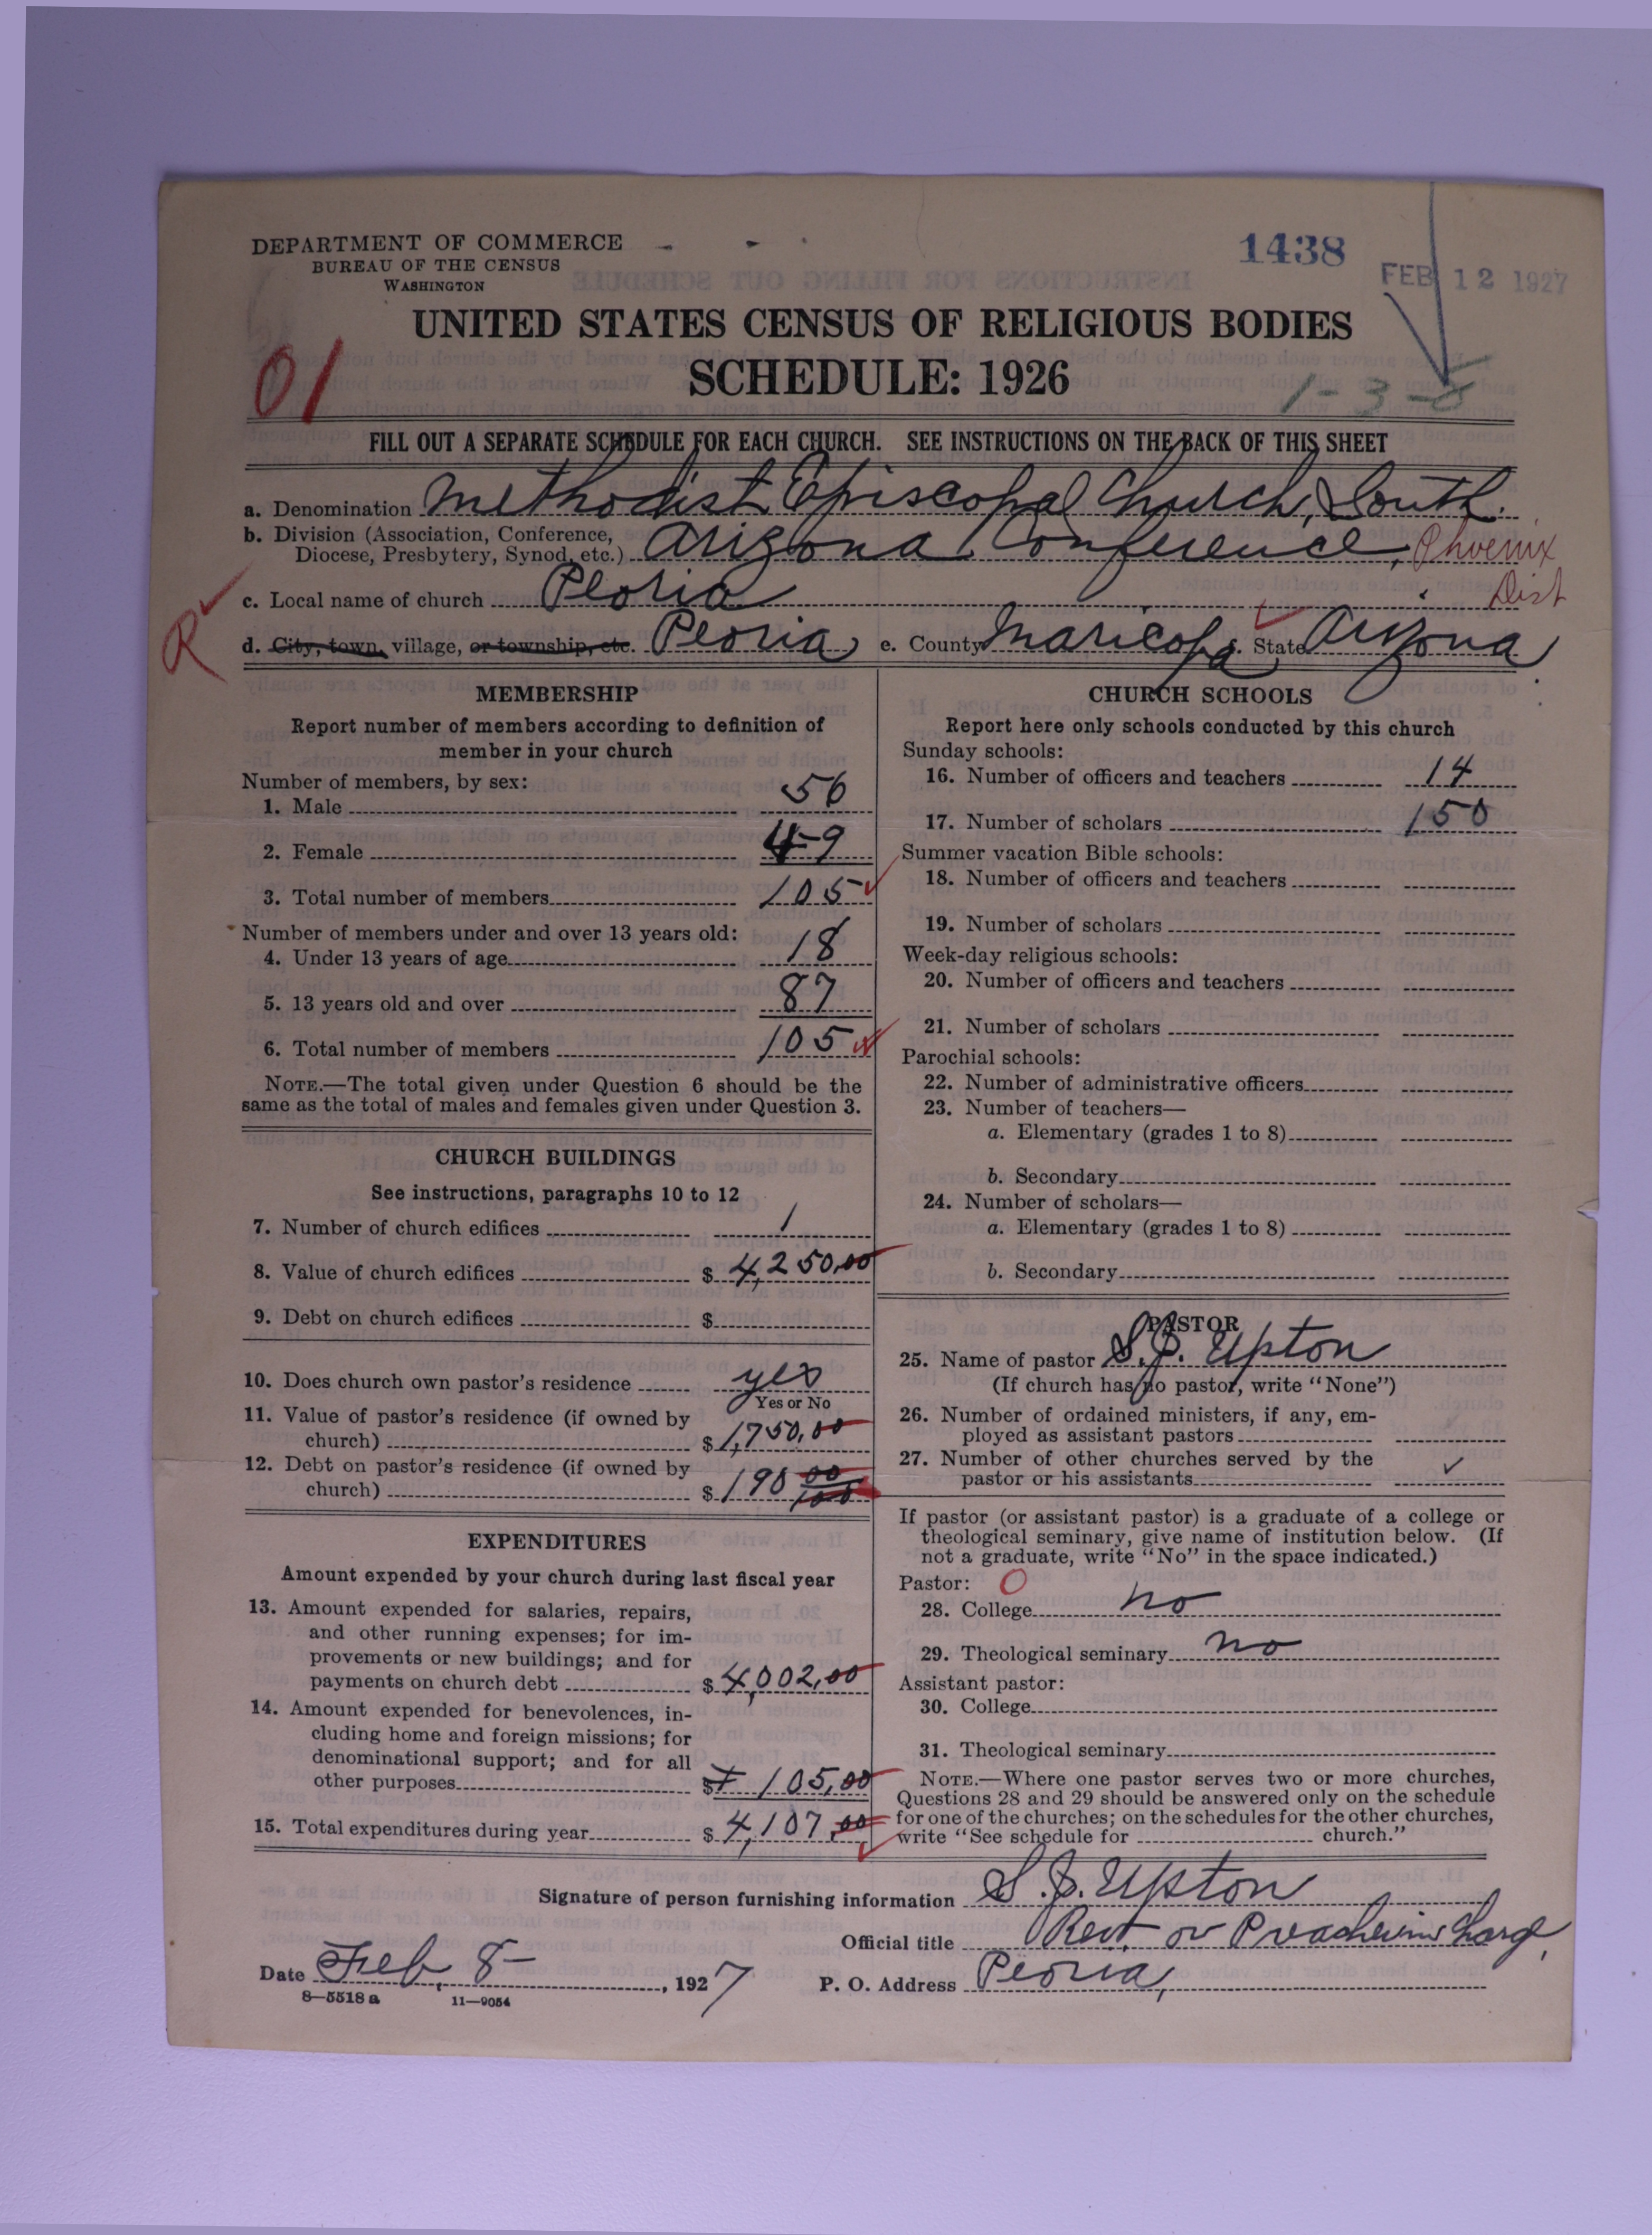 DEPARTMENT OF COMMERCE
BUREAU OF THE CENSUS
WASHINGTON
1438
FEB 12 1927
UNITED STATES CENSUS OF RELIGIOUS BODIES
SCHEDULE: 1926
01
1-3-
FILL OUT A SEPARATE SCHEDULE FOR EACH CHURCH. SEE INSTRUCTIONS ON THE BACK OF THIS SHEET
a. Denomination Methodist Episcopal Church, South.
b. Division (Association, Conference,
Diocese, Presbytery, Synod, etc.) Arizona Conference, Phoenix
Dist
c. Local name of church Peoria
R
d. City, town, village, or township, etc. Peoria e. County Maricopa f. State Arizona
MEMBERSHIP
Report number of members according to definition of
member in your church
Number of members, by sex:
1. Male 56
2. Female 49
3. Total number of members 105
Number of members under and over 13 years old:
4. Under 13 years of age 18
5. 13 years old and over 87
6. Total number of members 105
NOTE.—The total given under Question 6 should be the
same as the total of males and females given under Question 3.
CHURCH BUILDINGS
See instructions, paragraphs 10 to 12
7. Number of church edifices 1
8. Value of church edifices $ 4,250.00
9. Debt on church edifices $
10. Does church own pastor's residence yes
Yes or No
11. Value of pastor's residence (if owned by
church) $ 1,750.00
12. Debt on pastor's residence (if owned by
church) $ 190 00/100
EXPENDITURES
Amount expended by your church during last fiscal year
13. Amount expended for salaries, repairs,
and other running expenses; for im-
provements or new buildings; and for
payments on church debt $ 4,002.00
14. Amount expended for benevolences, in-
cluding home and foreign missions; for
denominational support; and for all
other purposes $ 105.00
15. Total expenditures during year $ 4,107.00
CHURCH SCHOOLS
Report here only schools conducted by this church
Sunday schools:
16. Number of officers and teachers 14
17. Number of scholars 150
Summer vacation Bible schools:
18. Number of officers and teachers
19. Number of scholars
Week-day religious schools:
20. Number of officers and teachers
21. Number of scholars
Parochial schools:
22. Number of administrative officers
23. Number of teachers—
a. Elementary (grades 1 to 8)
b. Secondary
24. Number of scholars—
a. Elementary (grades 1 to 8)
b. Secondary
PASTOR
25. Name of pastor S. J. Upton
(If church has no pastor, write "None")
26. Number of ordained ministers, if any, em-
ployed as assistant pastors
27. Number of other churches served by the
pastor or his assistants ✓
If pastor (or assistant pastor) is a graduate of a college or
theological seminary, give name of institution below. (If
not a graduate, write "No" in the space indicated.)
Pastor: 0
28. College no
29. Theological seminary no
Assistant pastor:
30. College
31. Theological seminary
NOTE.—Where one pastor serves two or more churches,
Questions 28 and 29 should be answered only on the schedule
for one of the churches; on the schedules for the other churches,
write "See schedule for church."
Signature of person furnishing information S. J. Upton
Official title Revt. or Preacher in Charge,
Date Feb. 8- , 1927 P. O. Address Peoria,
8—5518 a 11—9054